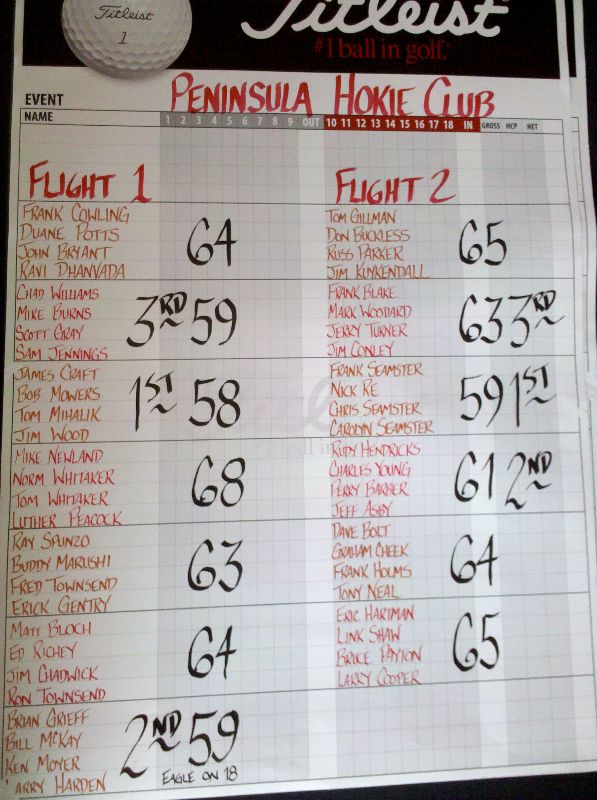 Titleist
1
Titleist
#1 ball in golf.
EVENT
PENINSULA HOKIE CLUB
NAME 1 2 3 4 5 6 7 8 9 OUT 10 11 12 13 14 15 16 17 18 IN GROSS HCP NET
FLIGHT 1
FRANK COWLING
DUANE POTTS
JOHN BRYANT
RAVI DHANVADA
64
CHAD WILLIAMS
MIKE BURNS
SCOTT GRAY
SAM JENNINGS
3RD 59
JAMES CRAFT
BOB MOWERS
TOM MIHALIK
JIM WOOD
1ST 58
MIKE NEWLAND
NORM WHITAKER
TOM WHITAKER
LUTHER PEACOCK
68
RAY SPUNZO
BUDDY MARUSHI
FRED TOWNSEND
ERICK GENTRY
63
MATT BLOCH
ED RICHEY
JIM CHADWICK
RON TOWNSEND
64
BRIAN GRIEFF
BILL MCKAY
KEN MOYER
LARRY HARDEN
2ND 59
EAGLE ON 18
FLIGHT 2
TOM GILLMAN
DON BUCKLESS
RUSS PARKER
JIM KUYKENDALL
65
FRANK BLAKE
MARK WOODARD
JERRY TURNER
JIM CONLEY
63 3RD
FRANK SEAMSTER
NICK RE
CHRIS SEAMSTER
CAROLYN SEAMSTER
59 1ST
RUDY HENDRICKS
CHARLES YOUNG
PERRY BARBER
JEFF ASBY
61 2ND
DAVE BOLT
GRAHAM CHEEK
FRANK HOLMS
TONY NEAL
64
ERIC HARTMAN
LINK SHAW
BRUCE PAYTON
LARRY COOPER
65